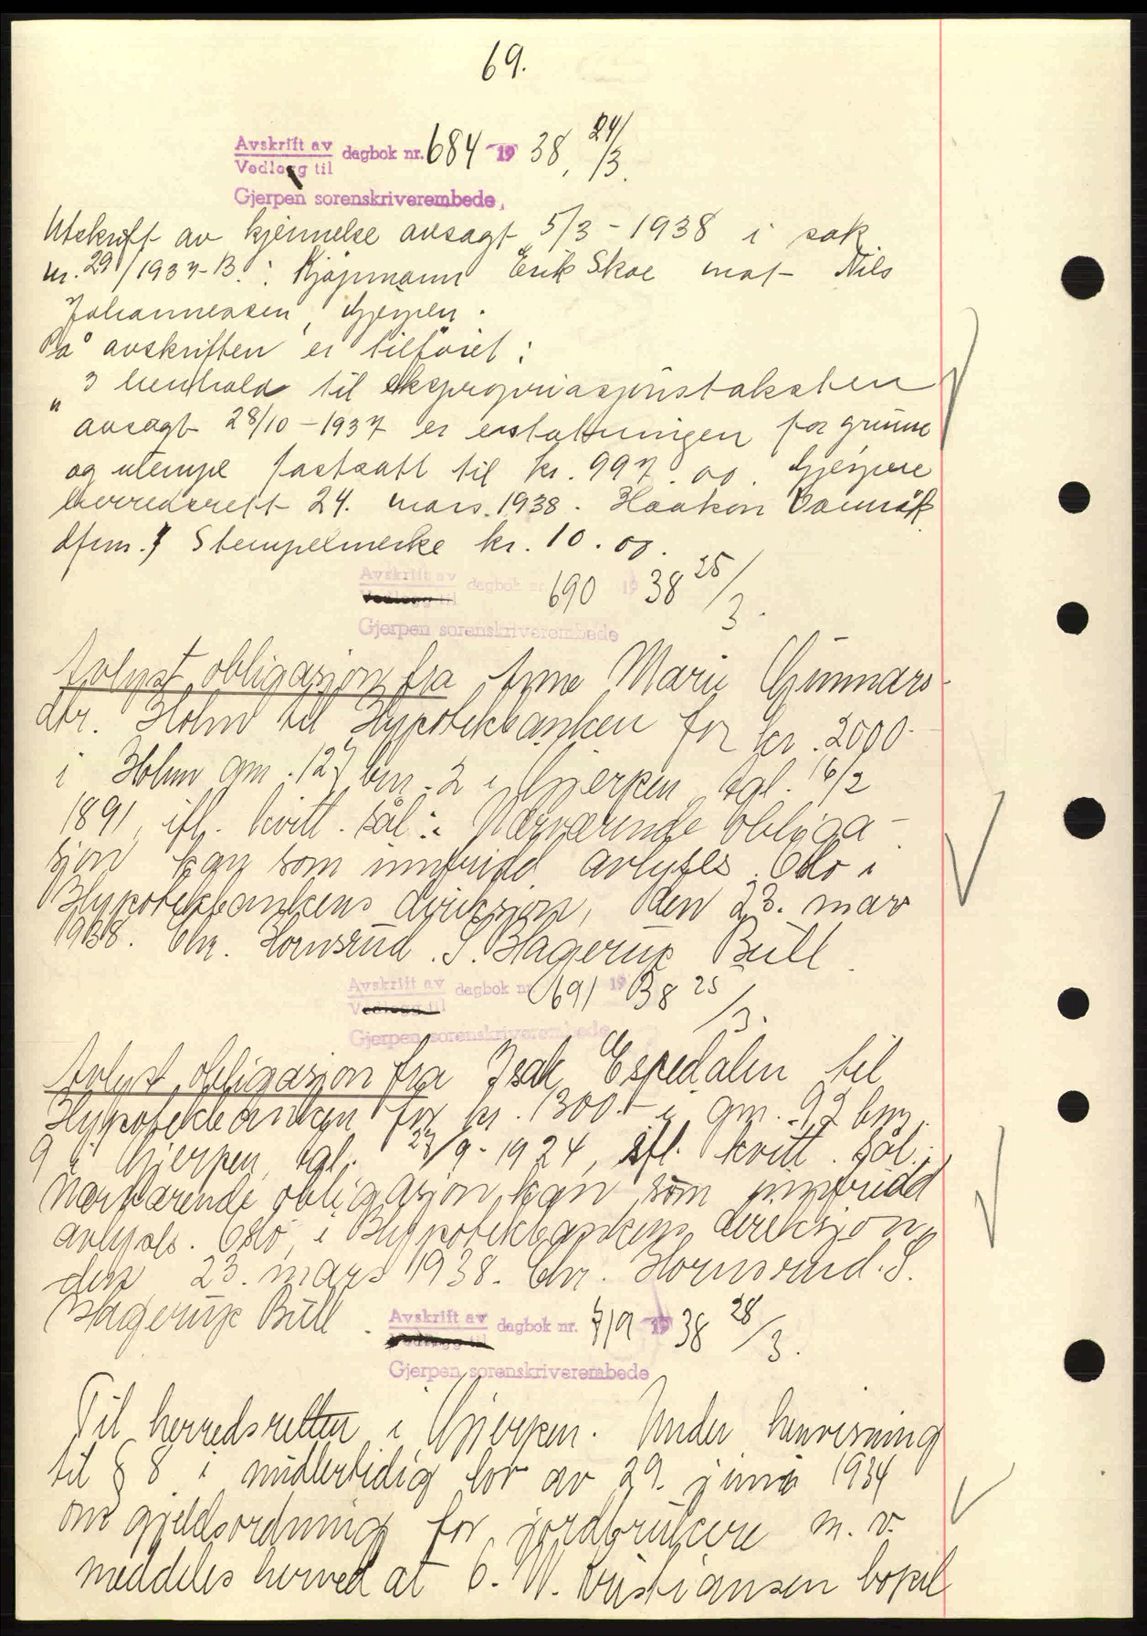 69.
Avskrift av
Vedlegg til dagbok nr. 684 19 38, 24/3.
Gjerpen sorenskriverembede,
Utskrift av kjennelse avsagt 5/3 - 1938 i sak
nr. 29/1937-B. : Kjøpmann Erik Skoe mot Nils
Johannessen, Gjerpen.
På avskriften er tilføiet :
" I henhold til ekspropriasjonstaksten
avsagt 28/10 - 1937 er erstatningen for grunn
og ulempe fastsatt til kr. 997.00. Gjerpen
herredsrett 24. mars 1938. Haakon
dfm." Stempelmerke kr. 10.00.
Avskrift av
Vedlegg til dagbok nr. 690 19 38 25/3.
Gjerpen sorenskriverembede
Avlyst obligasjon fra Anne Marie Gunnars-
dtr. Holm til Hypotekbanken for kr. 2000.-
i Holm gnr. 127 bnr. 2 i Gjerpen tgl. 16/2
1891, ifl. kvitt. sål.: Nærværende obliga-
sjon kan som innfridd avlyses. Oslo i
Hypotekbankens direksjon, den 23. mars
1938. Chr. Hornsrud. S. Hagerup Bull.
Avskrift av
Vedlegg til dagbok nr. 691 19 38 25/3.
Gjerpen sorenskriverembede
Avlyst obligasjon fra Isak Espedalen til
Hypotekbanken for kr. 1300.- i gnr. 92 bnr.
9 i Gjerpen, tgl. 27/9 - 1924, ifl. kvitt. sål.:
Nærværende obligasjon kan som innfridd
avlyses. Oslo, i Hypotekbankens direksjon,
den 23. mars 1938. Chr. Hornsrud. S.
Hagerup Bull.
Avskrift av
Vedlegg til dagbok nr. 719 19 38 28/3.
Gjerpen sorenskriverembede
Til herredsretten i Gjerpen. Under henvisning
til § 8 i midlertidig lov av 29. juni 1934
om gjeldsordning for jordbrukere m.v.
meddeles herved at O. W. Kristiansen bopel